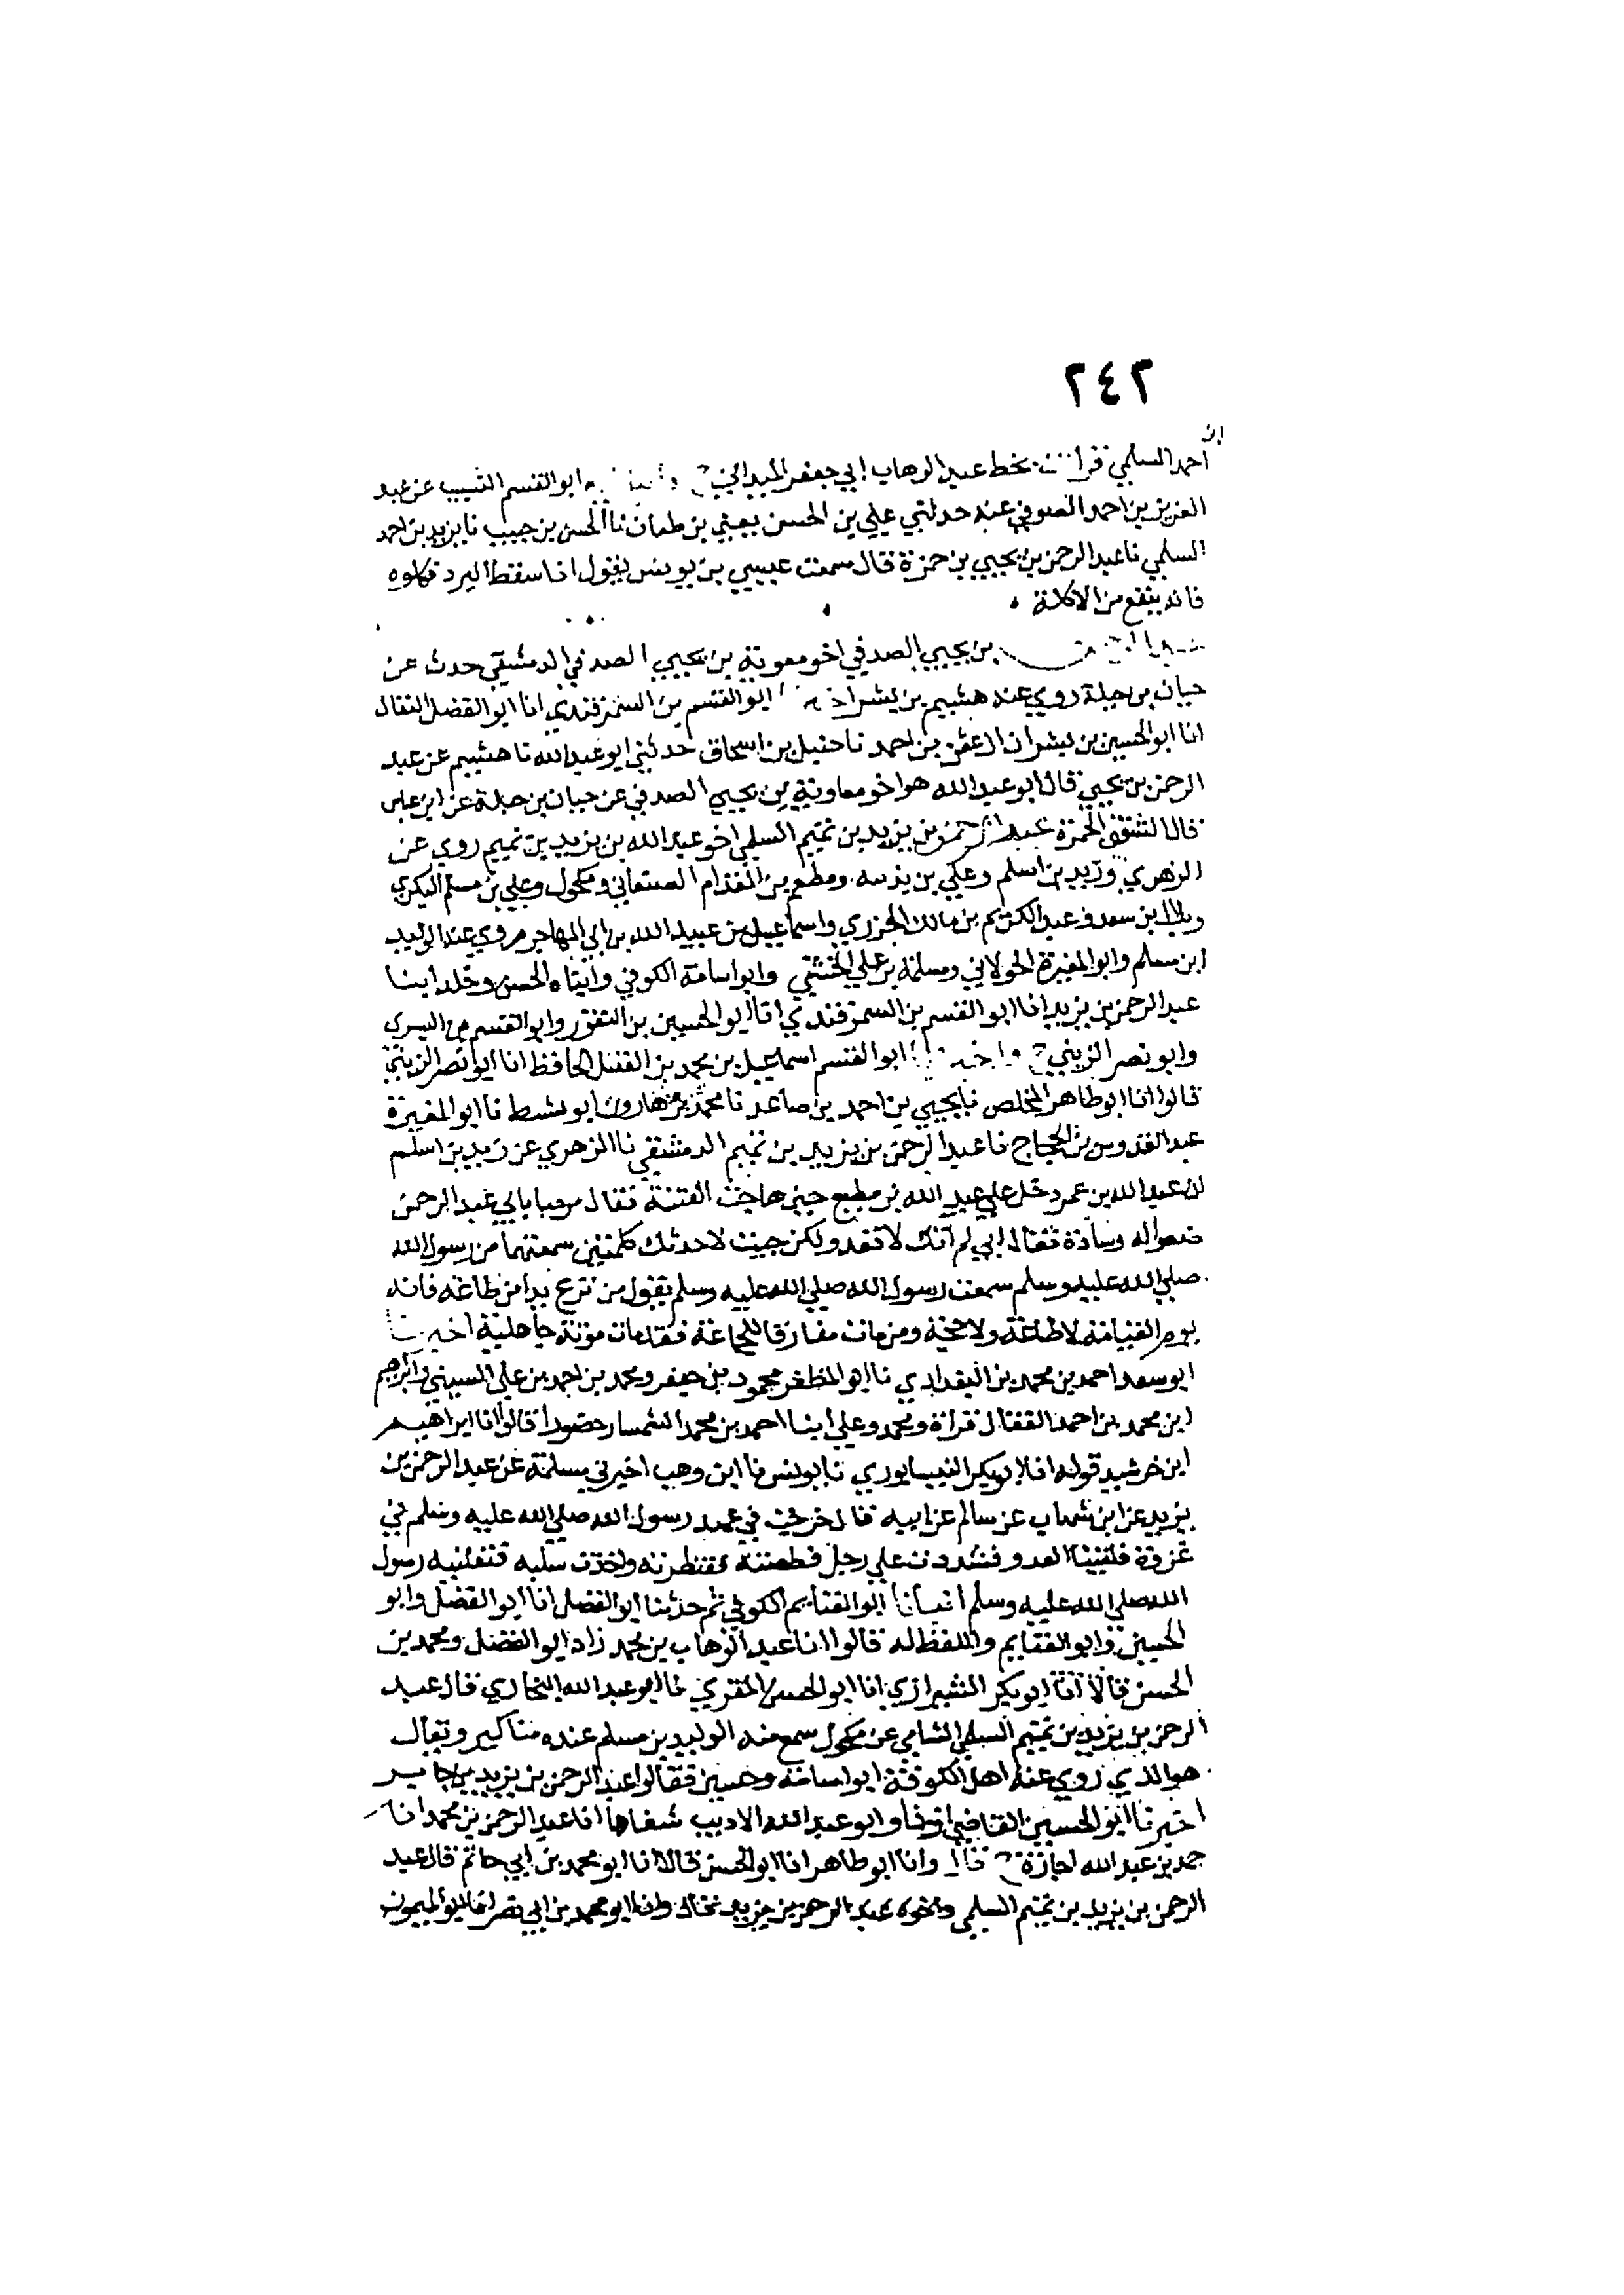 ٢٤٣
ابن
احمد السلمي قرات بخط عبد الوهاب ابي جعفر الميداني ح ابو القسم النسيب عن عبد
العزيز بن احمد الصوفي عنه حدثني علي بن الحسن يعني بن طعان نا الحسن بن حبيب نا يزيد بن احمد
السلمي نا عبد الرحمن بن يحيي بن حمزة قال سمعت عيسي بن يونس يقول اذا سقط البرد فكلوه
فانه ينفع من الاكلة
بن يحيي الصدفي اخو معوية بن يحيي الصدفي الدمشقي حدث عن
حبان بن جبلة روي عنه هشيم بن بشر ابو القسم بن السمرقندي انا ابو الفضل البقال
انا ابو الحسين بن بشران انا عثمن بن احمد نا حنبل بن اسحاق حدثني ابو عبد الله نا هشيم عن عبد
الرحمن بن يحيي قال ابو عبد الله هو اخو معاوية بن يحيي الصدفي عن حبان بن جبلة عن ابن عباس
قال الشفق الحمرة عبد الرحمن بن يزيد بن تميم السلمي اخو عبد الله بن يزيد بن تميم روي عن
الزهري وزيد بن اسلم وعلي بن بذيمه ومطعم بن المقدام الصنعاني ومكحول وعلي بن مسلم البكري
وبلال بن سعد وعبد الكريم بن مالك الجزري واسماعيل بن عبيد الله بن ابي المهاجر روي عنه الوليد
ابن مسلم وابو المغيرة الخولاني ومسلمة بن علي الخشني وابو اسامة الكوفي وابناه الحسن وخلد ابنا
عبد الرحمن بن يزيد انا ابو القسم بن السمرقندي انا ابو الحسين بن النقور وابو القسم بن البسري
وابو نصر الزينبي ح ابو القسم اسماعيل بن محمد بن الفضل الحافظ انا ابو نصر الزينبي
قالوا انا ابو طاهر المخلص نا يحيي بن احمد بن صاعد نا محمد بن هارون ابو نشيط نا ابو المغيرة
عبد القدوس بن الحجاج نا عبد الرحمن بن يزيد بن تميم الدمشقي نا الزهري عن زيد بن اسلم
ان عبد الله بن عمر دخل علي عبد الله بن مطيع حين هاجت الفتنة فقال مرحبا بابي عبد الرحمن
ضعوا له وسادة فقال اني لم آتك لا قعد ولكن جيت لاحدثك كلمتين سمعتهما من رسول الله
صلي الله عليه وسلم سمعت رسول الله صلي الله عليه وسلم يقول من نزع يدا من طاعة فانه
يوم القيامة لا طاعة ولا حجة ومن مات مفارقا للجماعة فقد مات موتة جاهلية اخبرنا
ابو سعد احمد بن محمد بن البغدادي نا ابو المظفر محمود بن جعفر ومحمد بن احمد بن علي السيبني وابرهيم
ابن محمد بن احمد القفال قراة ومحمد وعلي ابنا احمد بن محمد السمسار حضورا قالوا انا ابراهيم
ابن خرشيد قوله انا ابو بكر النيسابوري نا يونس نا ابن وهب اخبرني مسلمة عن عبد الرحمن بن
يزيد عن ابن شهاب عن سالم عن ابيه قال خرجت في عهد رسول الله صلي الله عليه وسلم في
غزوة فلقينا العدو فشددت علي رجل فطعنته فقنطرته واخذت سلبه فنفلنيه رسول
الله صلي الله عليه وسلم انبانا ابو الغنايم الكوفي ثم حدثنا ابو الفضل انا ابو الفضل وابو
الحسين وابو الغنايم واللفظ له قالوا انا عبد الوهاب بن محمد زاد ابو الفضل ومحمد بن
الحسن قالا انا ابو بكر الشيرازي انا ابو الحسن المقري نا ابو عبد الله البخاري قال عبد
الرحمن بن يزيد بن تميم السلمي الشامي عن مكحول سمع منه الوليد بن مسلم عنده مناكير ويقال
هو الذي روي عنه اهل الكوفة ابو اسامة وحسين فقالوا عبد الرحمن بن يزيد بن جابر
اخبرنا ابو الحسين القاضي اذنا وابو عبد الله الاديب شفاها انا عبد الرحمن بن محمد انا
حمد بن عبد الله اجازة ح قال وانا ابو طاهر انا ابو الحسن قالا انا ابو محمد بن ابي حاتم قال عبد
الرحمن بن يزيد بن تميم السلمي عبد الرحمن بن يزيد ابو محمد بن ابي نصر انا ابو الميمون